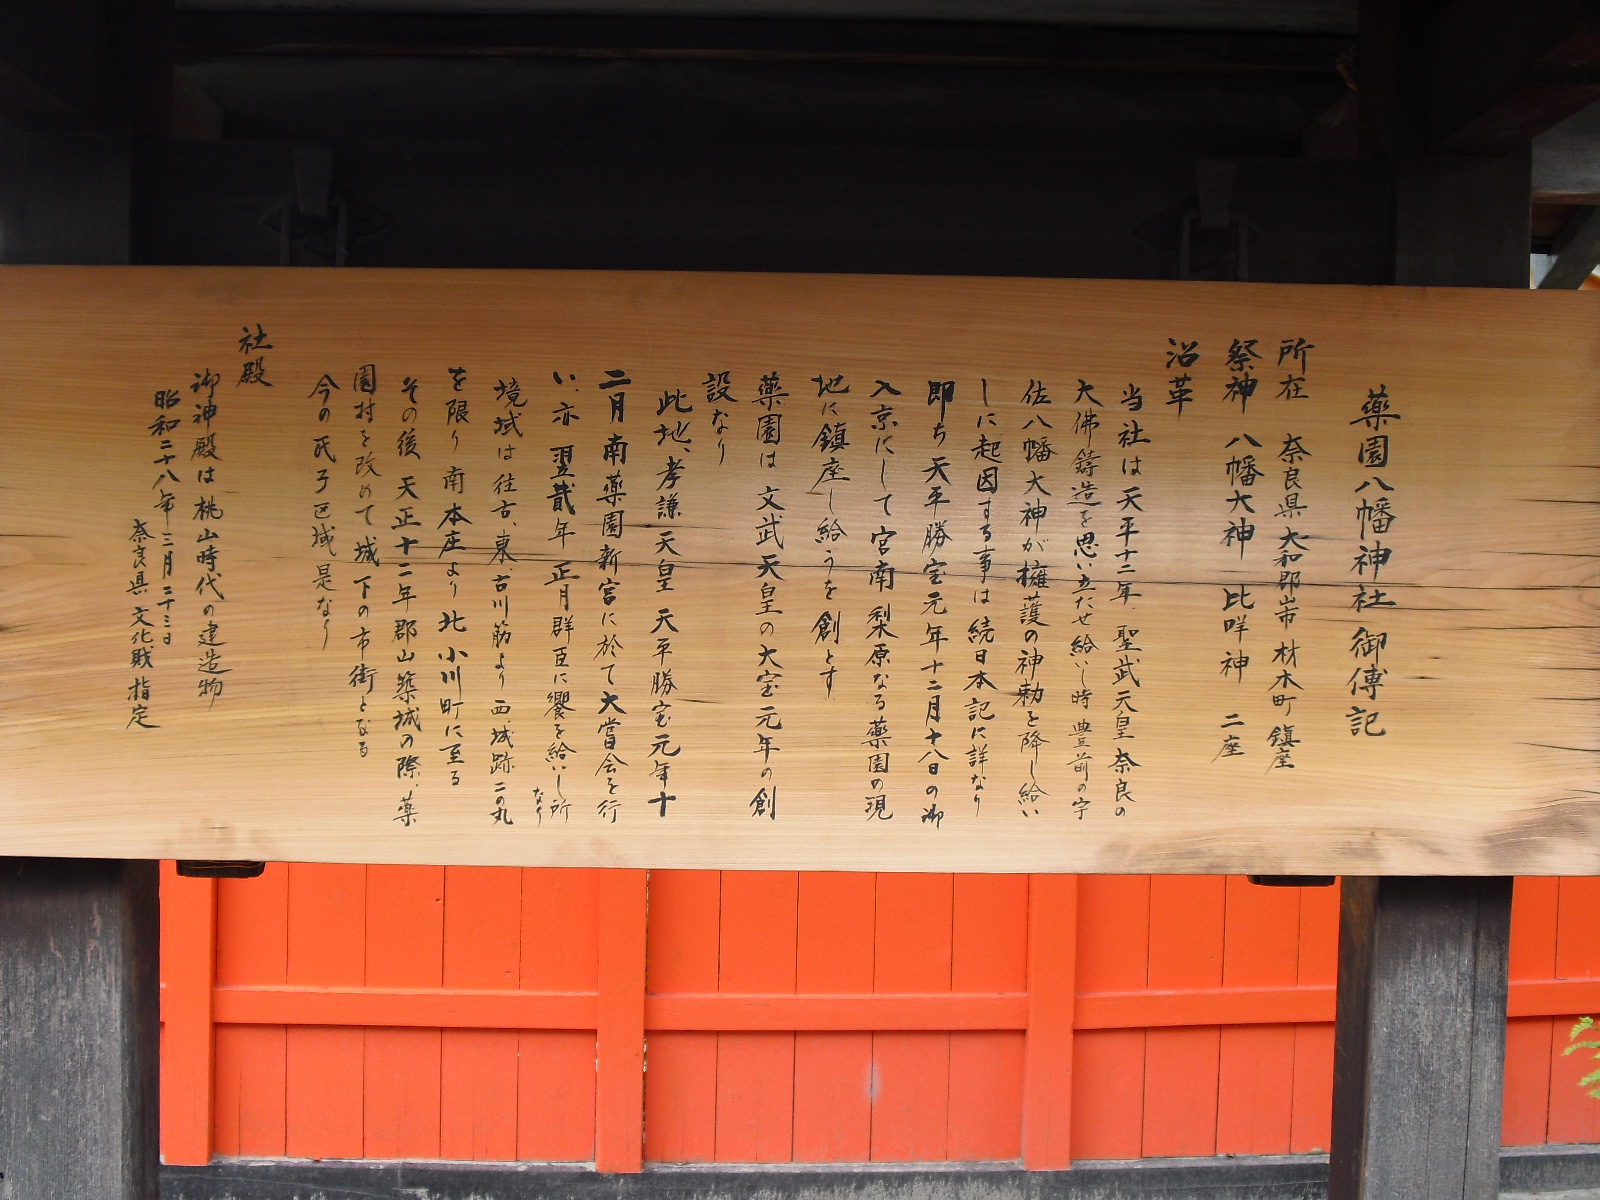 薬園八幡神社御傳記
所在 奈良県大和郡山市材木町鎮座
祭神 八幡大神 比咩神 二座
沿革
当社は天平十二年、聖武天皇奈良の
大佛鋳造を思い立たせ給いし時豊前の宇
佐八幡大神が擁護の神勅を降し給い
しに起因する事は続日本記に詳なり
即ち天平勝宝元年十二月十八日の御
入京にして宮南梨原なる薬園の現
地に鎮座し給うを創とす
薬園は文武天皇の大宝元年の創
設なり
此地、孝謙天皇天平勝宝元年十
二月南薬園新宮に於て大嘗会を行
い、亦翌貮年正月群臣に饗を給いし所なり
境域は往古、東、古川筋より西、城跡二の丸
を限り南本庄より北小川町に至る
その後天正十二年郡山築城の際、薬
園村を改めて城下の市街となる
今の氏子区域是なり
社殿
御神殿は桃山時代の建造物
昭和二十八年三月二十三日
奈良県文化財指定